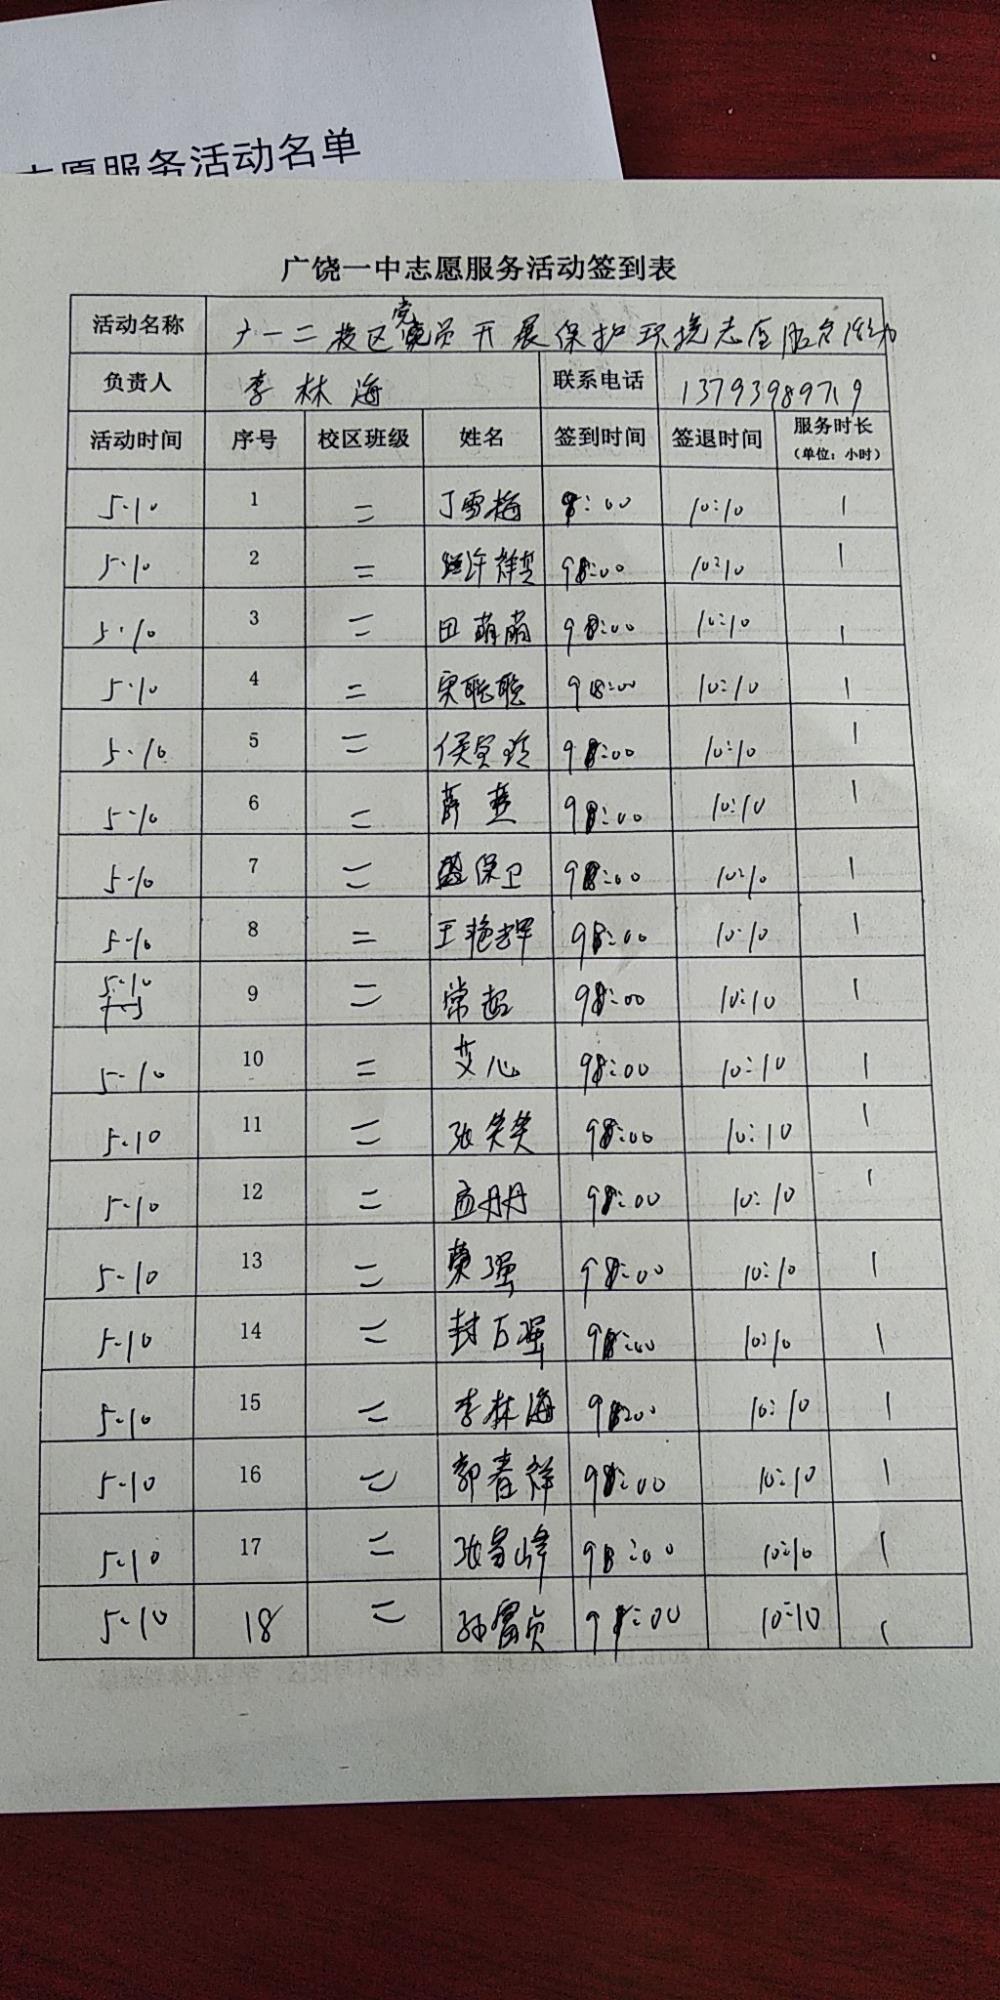 志愿服务活动名单
广饶一中志愿服务活动签到表
活动名称 广一二校区党员开展保护环境志愿服务活动
负责人 李林海 联系电话 13793989719
活动时间 序号 校区班级 姓名 签到时间 签退时间 服务时长
（单位：小时）
5.10 1 二 丁雪梅 8:00 10:10 1
5.10 2 二 许祥英 98:00 10:10 1
5.10 3 二 田萌萌 98:00 10:10 1
5.10 4 二 宋聪聪 98:00 10:10 1
5.10 5 二 侯贝玲 98:00 10:10 1
5.10 6 二 薛燕 98:00 10:10 1
5.10 7 二 盛保卫 98:00 10:10 1
5.10 8 二 王艳辉 98:00 10:10 1
5.10 9 二 常超 98:00 10:10 1
5-10 10 二 艾心 98:00 10:10 1
5.10 11 二 张笑笑 98:00 10:10 1
5-10 12 二 孟丹丹 98:00 10:10 1
5-10 13 二 荣强 98:00 10:10 1
5-10 14 二 封万军 98:00 10:10 1
5-10 15 二 李林海 98:00 10:10 1
5-10 16 二 郭春祥 98:00 10:10 1
5-10 17 二 张峰 98:00 10:10 1
5-10 18 二 孙富贞 98:00 10:10 1